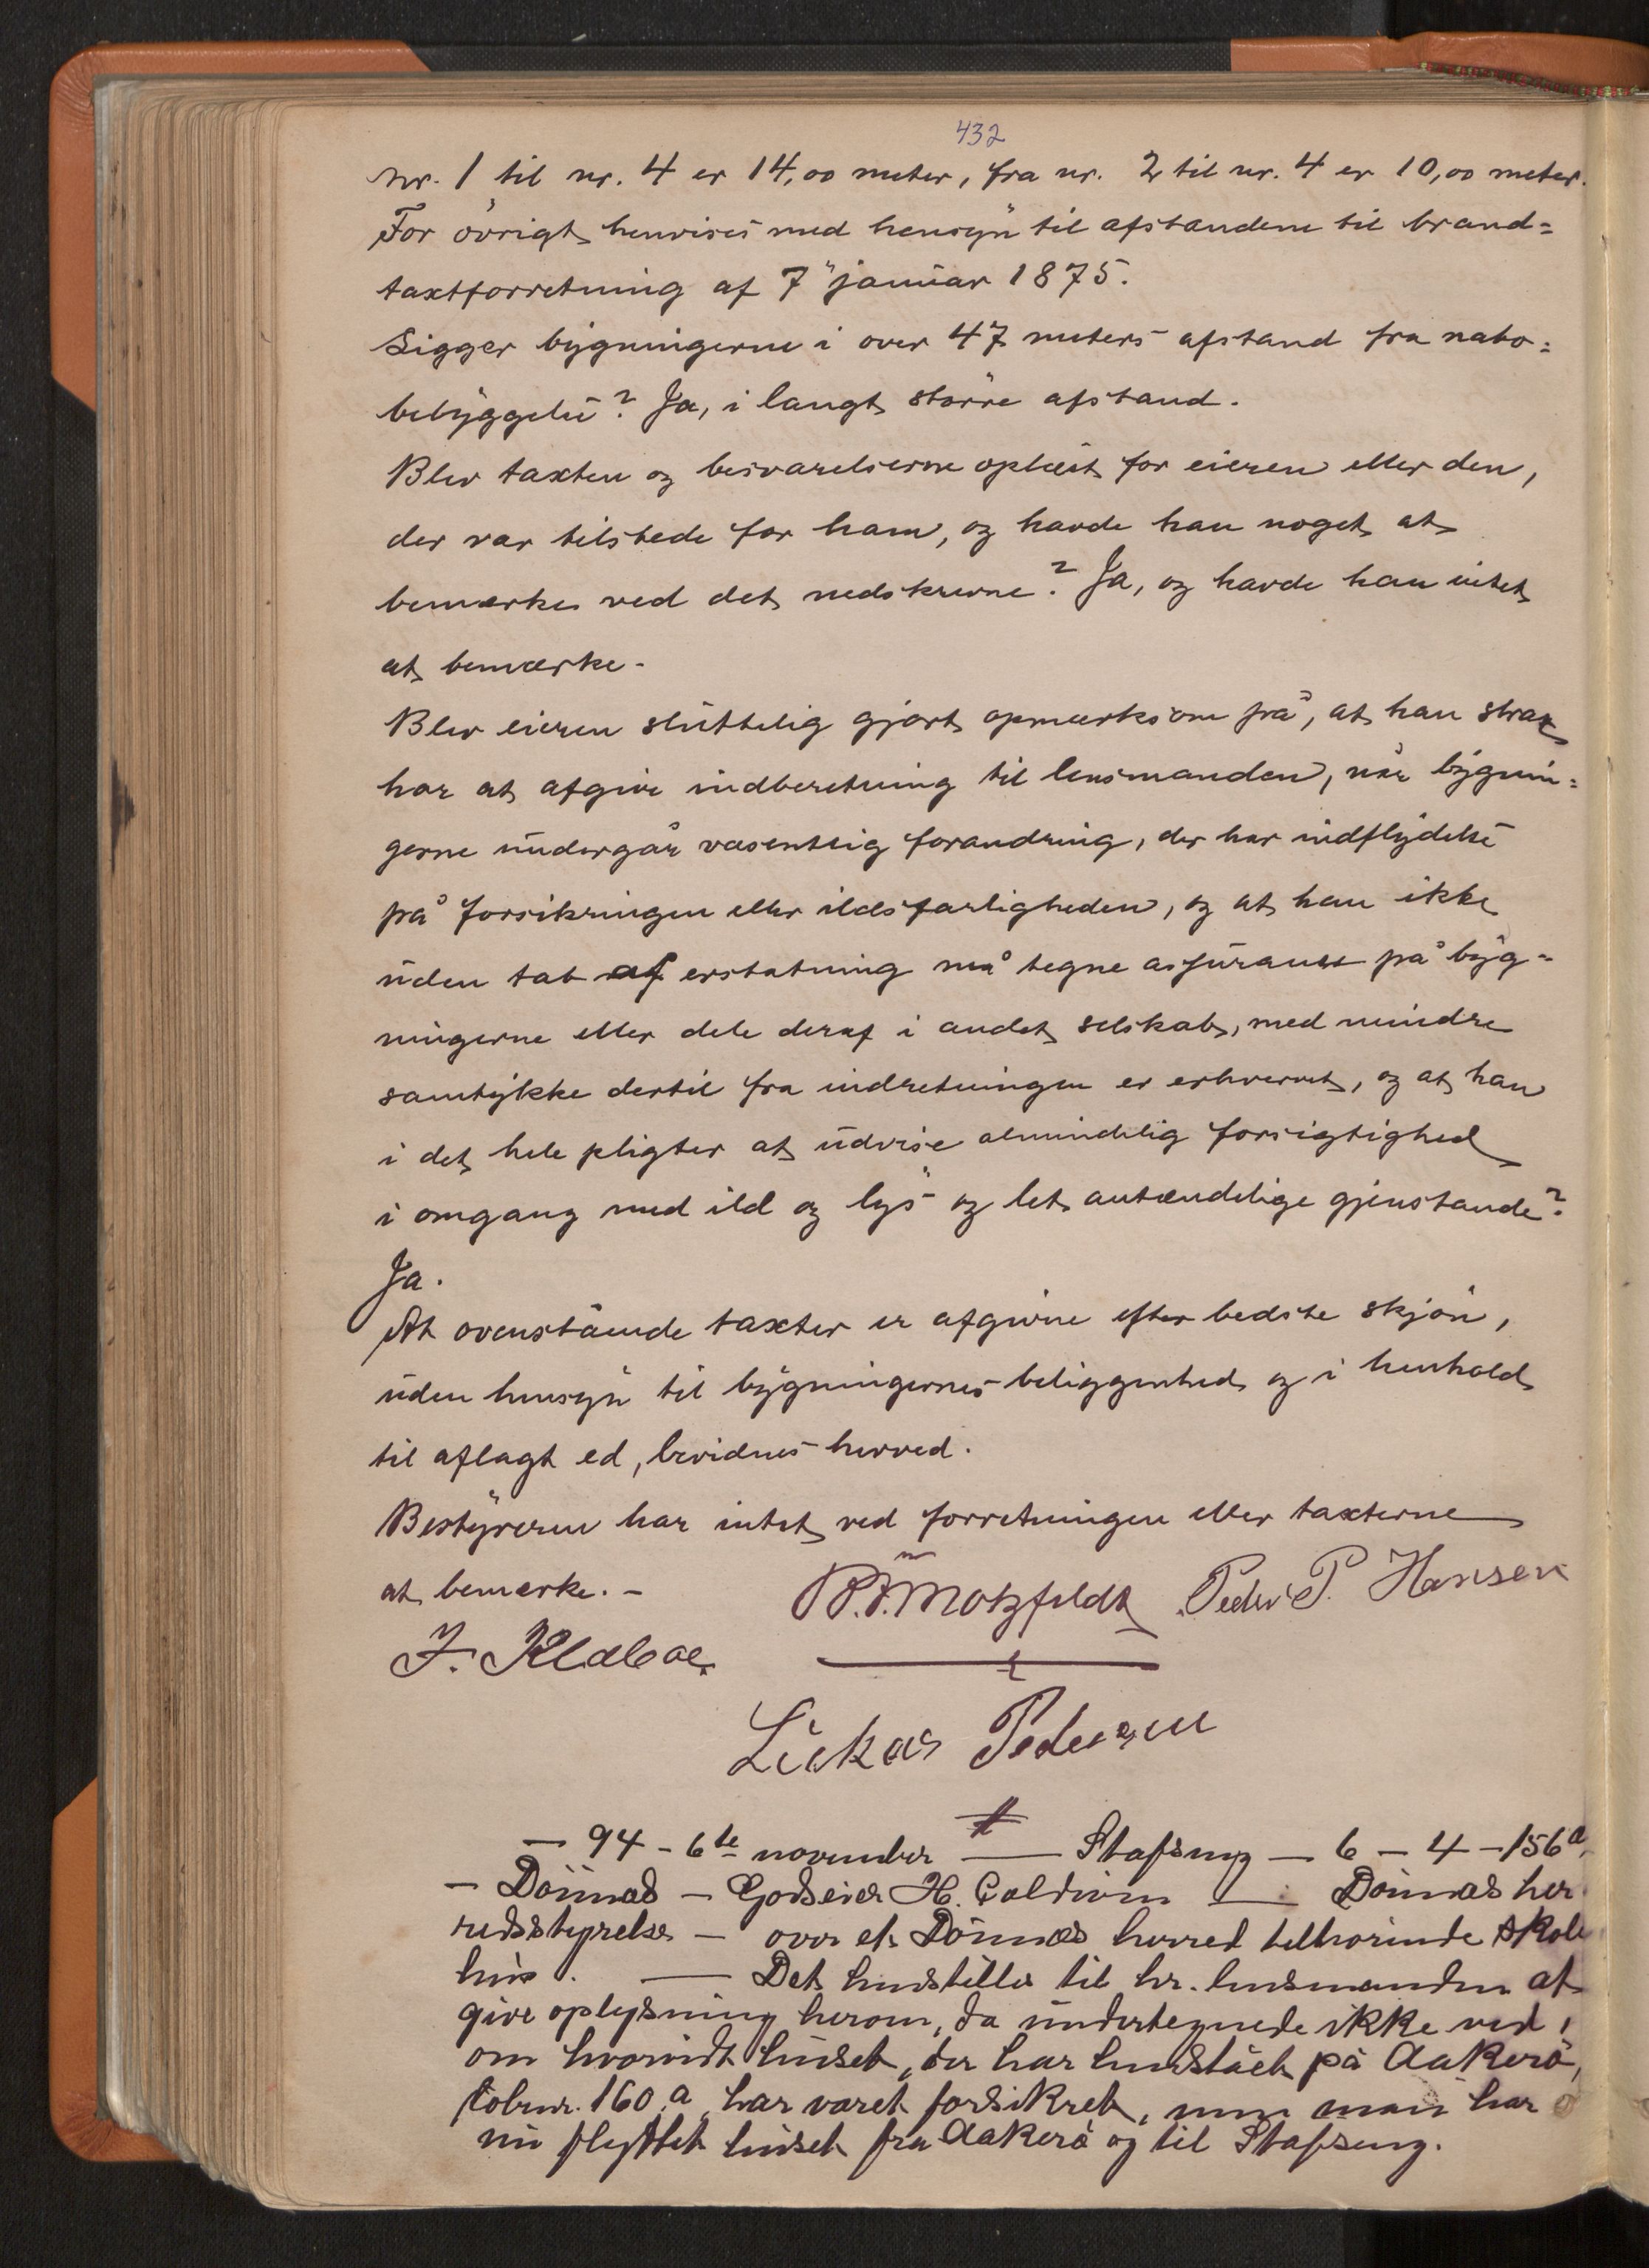 432
nr. 1 til nr. 4 er 14,00 meter, fra nr. 2 til nr. 4 er 10,00 meter.
For övrigt henvises med hensyn til afstandene til brand=
taxtforretning af 7 januar 1875.
Ligger bygningerne i over 47 meters afstand fra nabo=
bebyggelse? Ja, i langt större afstand.
Blev taxten og besvarelserne oplæst for eieren eller den,
der var tilstede for ham, og havde han noget at
bemærke ved det nedskrevne? Ja, og havde han intet
at bemærke.
Blev eieren sluttelig gjort opmærksom på, at han strax
har at afgive indberetning til lensmanden, når bygnin=
gerne undergår væsentlig forandring, der har indflydelse
på forsikringen eller ildsfarligheden, og at han ikke
uden tab af erstatning må tegne assurance på byg=
ningerne eller dele deraf i andet selskab, med mindre
samtykke dertil fra indretningen er erhvervet, og at han
i det hele pligter at udvise almindelig forsigtighed
i omgang med ild og lys og let antændelige gjenstande?
Ja.
At ovenstående taxter er afgivne efter bedste skjön,
uden hensyn til bygningernes beliggenhed og i henhold
til aflagt ed, bevidnes herved.
Bestyreren har intet ved forretningen eller taxterne
at bemærke. –
P. F. Motzfeldt Peder P. Hansen
J. Klæboe
Lukas Pedersen
— 94 – 6te november — Stafseng — 6 – 4 – 156 a
– Dönnæs – Godseier H. Coldevin — Dönnæs her
redsstyrelse – over et Dönnæs herred tilhörende skole
hus. — Det henstilles til hr. lensmanden at
give oplysning herom, da undertegnede ikke ved,
om hvorvidt huset, der har henstået på Aakerö,
löbnr. 160 a, har været forsikret, men man har
nu flyttet huset fra Aakerö og til Stafseng.